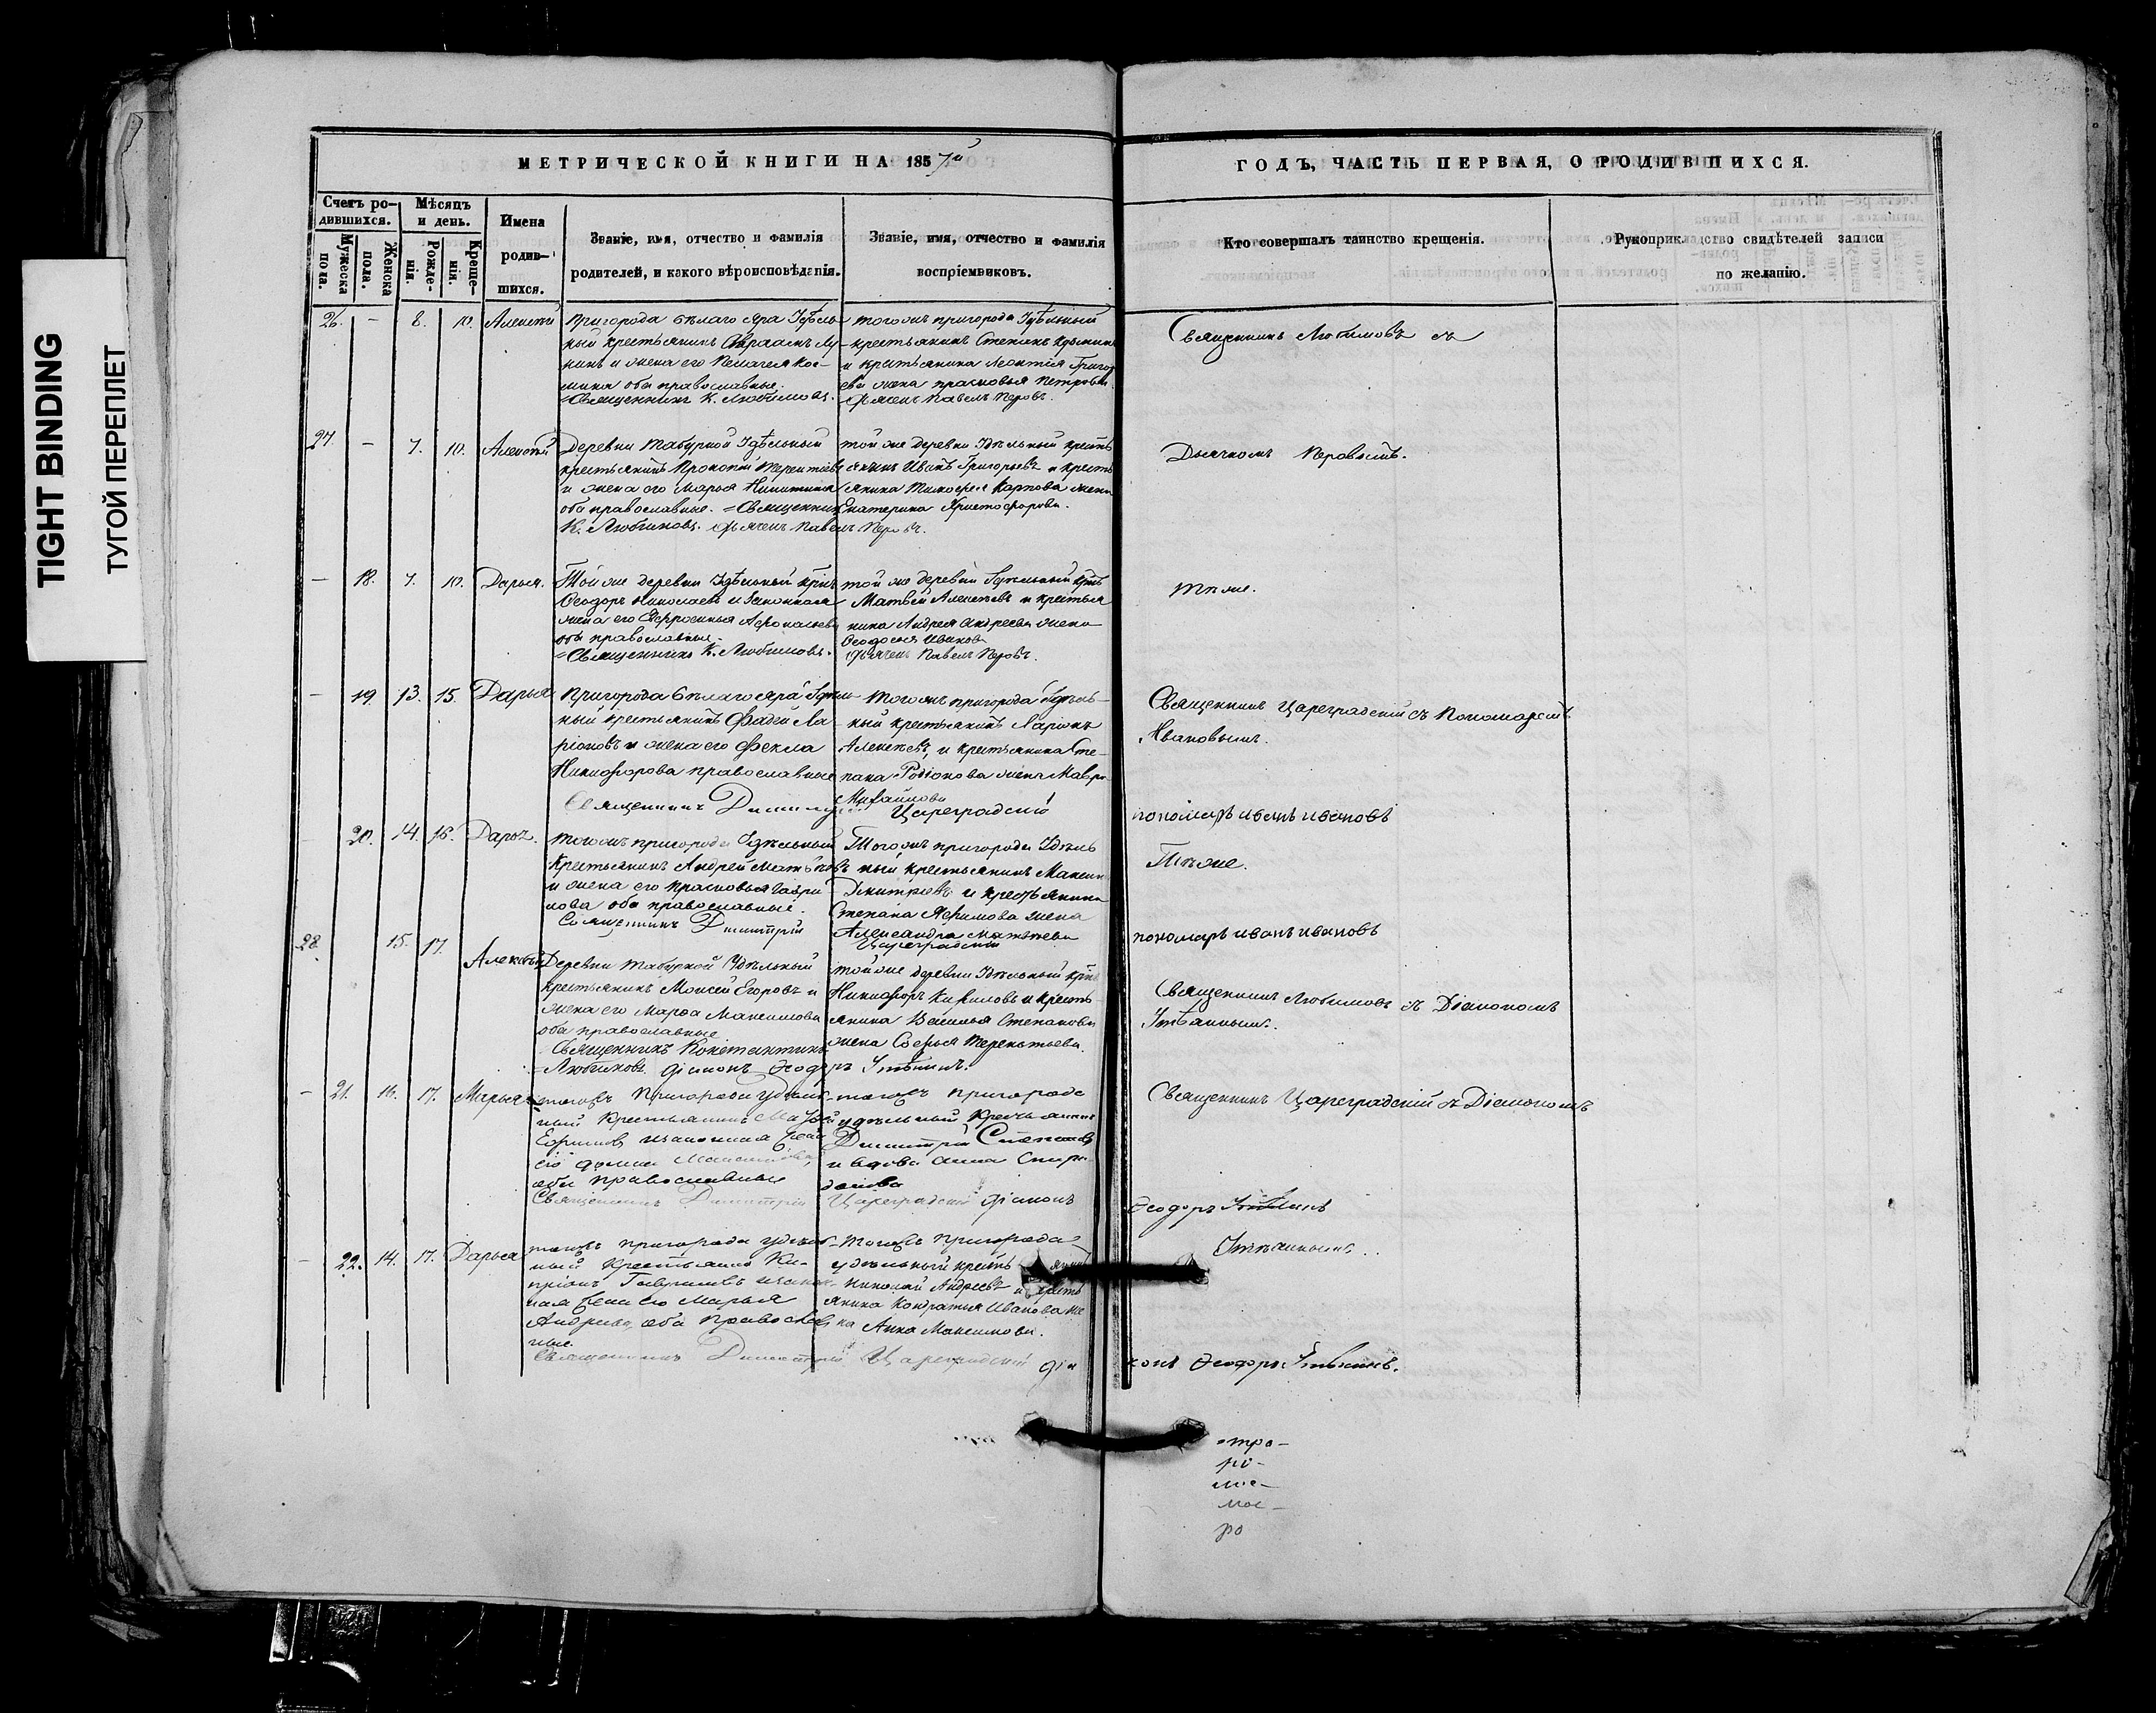 TIGHT BINDING
ТУГОЙ ПЕРЕПЛЕТ
МЕТРИЧЕСКОЙ КНИГИ НА 1857й
ГОДЪ, ЧАСТЬ ПЕРВАЯ, О РОДИВШИХСЯ.
Счетъ ро-
дившихся.
Мужеска
пола.
Женска
пола.
Мѣсяцъ
и день.
Рожде-
нія.
Креще-
нія.
Имена
родив-
шихся.
Званіе, имя, отчество и фамилія
родителей, и какого вѣроисповѣданія.
Званіе, имя, отчество и фамилія
воспріемниковъ.
Кто совершалъ таинство крещенія.
Рукоприкладство свидѣтелей записи
по желанію.
26. - 8. 10. Алексей
Пригорода бѣлаго яра Удѣль-
ный крестьянинъ
и жена его Пелагея
оба православные.
=Священникъ К. Любимовъ.
тогожъ пригорода Удѣльный
крестьянинъ Степанъ
и крестьянина Леонтія Григор
ева жена прасковья петрова.
Дьячекъ Павелъ Перовъ.
Священникъ Любимовъ съ
27. - 7. 10. Алексей
Деревни табурной Удѣльный
крестьянинъ Прокопій Терентіевъ
и жена его Марья Никитина
оба православные. =Священникъ
К. Любимовъ. Дьячекъ Павелъ Перовъ.
той же деревни Удѣльный кресть
янинъ Иванъ Григорьевъ и кресть
янина Тимофея Карпова жена
Екатерина Христофорова.
Дьячкомъ Перовымъ.
- 18. 7. 10. Дарья.
Той же деревни Удѣльный крть
Ѳеодоръ Николаевъ и законная
жена его Евфросинья
оба православные.
=Священникъ К. Любимовъ.
той же деревни Удѣльный крть
Матвей Алексѣевъ и крестья
нина Андрея Андреева жена
Ѳеодосья Иванова
Дьячекъ Павелъ Перовъ.
тѣ же.
- 19. 13. 15. Дарья
Пригорода бѣлаго яра Удѣль-
ный крестьянинъ Фадей Ла-
ріоновъ и жена его Фекла
Никифорова православные
Священникъ Димитрій Цареградскій
тогожъ пригорода Удѣль-
ный крестьянинъ Ларіонъ
Алексѣевъ, и крестьянина Сте-
пана Родіонова жена Мавра
Михайлова
Священникъ Цареградскій съ Пономаремъ
Ивановымъ.
пономарь иванъ ивановъ
20. 14. 16. Дарья.
тогожъ пригорода Удѣльный
Крестьянинъ Андрей
и жена его прасковья Гаври
лова оба православные.
Священникъ Димитрій
Тогожъ пригорода Удѣль
ный крестьянинъ Максим
Дмитріевъ и крестьянина
Степана Ефимова жена
Александра Матвѣева
Цареградскій
Тѣже.
пономарь иванъ ивановъ
28. 15. 17.
Алексѣй
Деревни табурной Удѣльный
крестьянинъ Моисей Егоровъ и
жена его Марѳа Максимова
оба православные
Священникъ Константинъ
Любимовъ. Діаконъ Ѳеодоръ
той же деревни Удѣльный крть
Никифоръ Кириловъ и кресть
янина Василья Степанова
жена Софья Терентьева.
Священникъ Любимовъ съ Діакономъ
- 21. 16. 17. Марья
тогожъ Пригорода удѣль-
ный Крестьянинъ
Ефимовъ изаконная жена
его
оба православные
Священникъ Димитрій Цареградскій Діаконъ
тогожъ пригорода
удѣльный
Димитрій Степановъ
и вдова анна Спири-
донова
Священникъ Цареградскій съ Діакономъ
Ѳеодоръ
- 22. 14. 17. Дарья
тогожъ пригорода удѣль-
ный Крестьянинъ Ки-
пріянъ Гавриловъ изакон-
ная жена его Марья
Андреева, оба Православ-
ные.
Священникъ Димитрій Цареградскій діа
тогожъ Пригорода
удѣльный кресть янинъ
Николай Андреевъ и кресть
янина Кондратья Иванова же
на Анна Максимова.
конъ Ѳеодоръ
отра-
ро